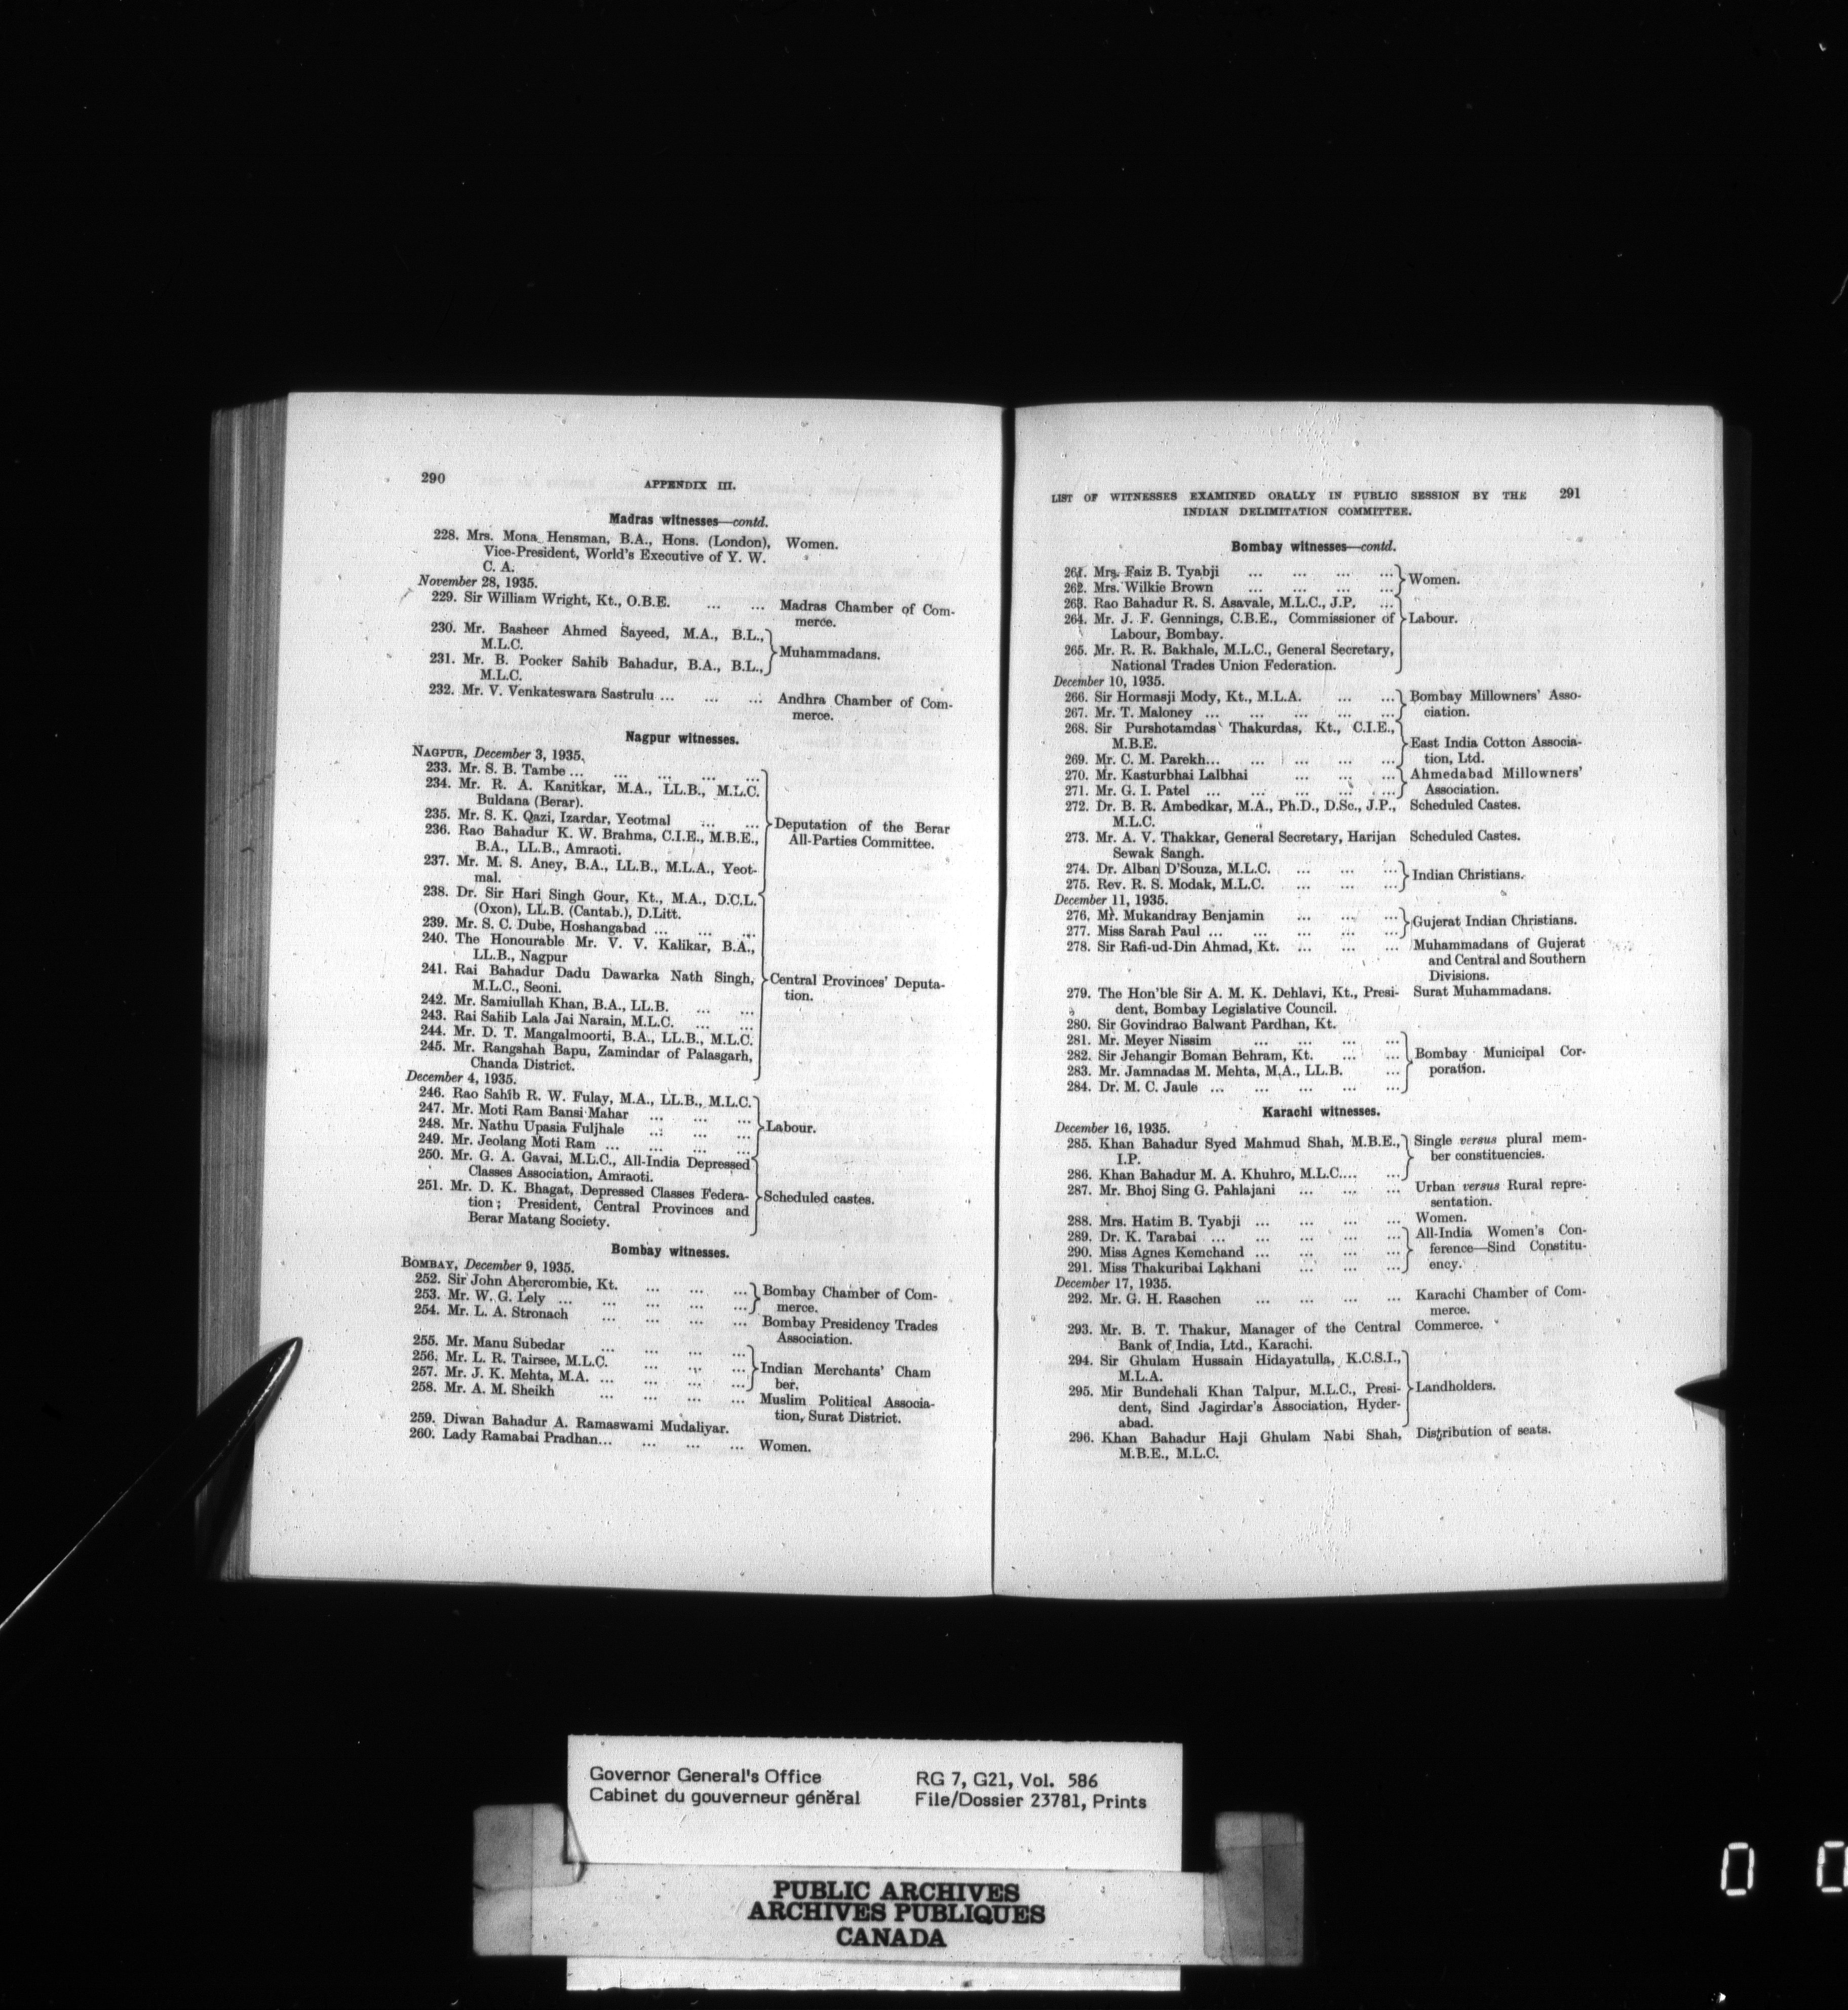 290
APPENDIX III.
Madras witnesses—contd.
228. Mrs. Mona Hensman, B.A., Hons. (London), Women.
Vice-President, World's Executive of Y. W.
C. A.
November 28, 1935.
229. Sir William Wright, Kt., O.B.E. ... ... Madras Chamber of Com-
merce.
230. Mr. Basheer Ahmed Sayeed, M.A., B.L.,
M.L.C.
Muhammadans.
231. Mr. B. Pocker Sahib Bahadur, B.A., B.L.,
M.L.C.
232. Mr. V. Venkateswara Sastrulu ... ... ... Andhra Chamber of Com-
merce.
Nagpur witnesses.
NAGPUR, December 3, 1935.
233. Mr. S. B. Tambe ... ... ... ... ...
234. Mr. R. A. Kanitkar, M.A., LL.B., M.L.C.
Buldana (Berar).
235. Mr. S. K. Qazi, Izardar, Yeotmal ... ...
236. Rao Bahadur K. W. Brahma, C.I.E., M.B.E.,
B.A., LL.B., Amraoti.
Deputation of the Berar
All-Parties Committee.
237. Mr. M. S. Aney, B.A., LL.B., M.L.A., Yeot-
mal.
238. Dr. Sir Hari Singh Gour, Kt., M.A., D.C.L.
(Oxon), LL.B. (Cantab.), D.Litt.
239. Mr. S. C. Dube, Hoshangabad ... ... ...
240. The Honourable Mr. V. V. Kalikar, B.A.,
LL.B., Nagpur
241. Rai Bahadur Dadu Dawarka Nath Singh,
M.L.C., Seoni.
Central Provinces' Deputa-
tion.
242. Mr. Samiullah Khan, B.A., LL.B. ... ...
243. Rai Sahib Lala Jai Narain, M.L.C. ... ...
244. Mr. D. T. Mangalmoorti, B.A., LL.B., M.L.C.
245. Mr. Rangshah Bapu, Zamindar of Palasgarh,
Chanda District.
December 4, 1935.
246. Rao Sahib R. W. Fulay, M.A., LL.B., M.L.C.
247. Mr. Moti Ram Bansi Mahar ... ... ...
248. Mr. Nathu Upasia Fuljhale ... ... ...
Labour.
249. Mr. Jeolang Moti Ram ... ... ... ...
250. Mr. G. A. Gavai, M.L.C., All-India Depressed
Classes Association, Amraoti.
251. Mr. D. K. Bhagat, Depressed Classes Federa-
tion; President, Central Provinces and
Berar Matang Society.
Scheduled castes.
Bombay witnesses.
BOMBAY, December 9, 1935.
252. Sir John Abercrombie, Kt. ... ... ...
253. Mr. W. G. Lely ... ... ... ... ...
Bombay Chamber of Com-
merce.
254. Mr. L. A. Stronach ... ... ... ... Bombay Presidency Trades
Association.
255. Mr. Manu Subedar ... ... ... ...
256. Mr. L. R. Tairsee, M.L.C. ... ... ...
257. Mr. J. K. Mehta, M.A. ... ... ... ...
Indian Merchants' Cham
ber.
258. Mr. A. M. Sheikh ... ... ... ... Muslim Political Associa-
tion, Surat District.
259. Diwan Bahadur A. Ramaswami Mudaliyar.
260. Lady Ramabai Pradhan... ... ... ... Women.
LIST OF WITNESSES EXAMINED ORALLY IN PUBLIC SESSION BY THE 291
INDIAN DELIMITATION COMMITTEE.
Bombay witnesses—contd.
261. Mrs. Faiz B. Tyabji ... ... ... ...
262. Mrs. Wilkie Brown ... ... ... ...
Women.
263. Rao Bahadur R. S. Asavale, M.L.C., J.P. ...
264. Mr. J. F. Gennings, C.B.E., Commissioner of
Labour, Bombay.
Labour.
265. Mr. R. R. Bakhale, M.L.C., General Secretary,
National Trades Union Federation.
December 10, 1935.
266. Sir Hormasji Mody, Kt., M.L.A. ... ...
267. Mr. T. Maloney ... ... ... ... ...
Bombay Millowners' Asso-
ciation.
268. Sir Purshotamdas Thakurdas, Kt., C.I.E.,
M.B.E.
269. Mr. C. M. Parekh... ... ... ... ...
East India Cotton Associa-
tion, Ltd.
270. Mr. Kasturbhai Lalbhai ... ... ...
271. Mr. G. I. Patel ... ... ... ... ...
Ahmedabad Millowners'
Association.
272. Dr. B. R. Ambedkar, M.A., Ph.D., D.Sc., J.P., Scheduled Castes.
M.L.C.
273. Mr. A. V. Thakkar, General Secretary, Harijan Scheduled Castes.
Sewak Sangh.
274. Dr. Alban D'Souza, M.L.C. ... ... ...
275. Rev. R. S. Modak, M.L.C. ... ... ...
Indian Christians.
December 11, 1935.
276. Mr. Mukandray Benjamin ... ... ...
277. Miss Sarah Paul ... ... ... ... ...
Gujerat Indian Christians.
278. Sir Rafi-ud-Din Ahmad, Kt. ... ... ... Muhammadans of Gujerat
and Central and Southern
Divisions.
279. The Hon'ble Sir A. M. K. Dehlavi, Kt., Presi- Surat Muhammadans.
dent, Bombay Legislative Council.
280. Sir Govindrao Balwant Pardhan, Kt.
281. Mr. Meyer Nissim ... ... ... ...
282. Sir Jehangir Boman Behram, Kt. ... ...
283. Mr. Jamnadas M. Mehta, M.A., LL.B. ...
284. Dr. M. C. Jaule ... ... ... ... ...
Bombay Municipal Cor-
poration.
Karachi witnesses.
December 16, 1935.
285. Khan Bahadur Syed Mahmud Shah, M.B.E.,
I.P.
286. Khan Bahadur M. A. Khuhro, M.L.C.... ...
Single versus plural mem-
ber constituencies.
287. Mr. Bhoj Sing G. Pahlajani ... ... ... Urban versus Rural repre-
sentation.
288. Mrs. Hatim B. Tyabji ... ... ... ... Women.
289. Dr. K. Tarabai ... ... ... ... ...
290. Miss Agnes Kemchand ... ... ... ...
291. Miss Thakuribai Lakhani ... ... ...
All-India Women's Con-
ference—Sind Constitu-
ency.
December 17, 1935.
292. Mr. G. H. Raschen ... ... ... ... Karachi Chamber of Com-
merce.
293. Mr. B. T. Thakur, Manager of the Central Commerce.
Bank of India, Ltd., Karachi.
294. Sir Ghulam Hussain Hidayatulla, K.C.S.I.,
M.L.A.
295. Mir Bundehali Khan Talpur, M.L.C., Presi-
dent, Sind Jagirdar's Association, Hyder-
abad.
Landholders.
296. Khan Bahadur Haji Ghulam Nabi Shah, Distribution of seats.
M.B.E., M.L.C.
Governor General's Office RG 7, G21, Vol. 586
Cabinet du gouverneur général File/Dossier 23781, Prints
PUBLIC ARCHIVES
ARCHIVES PUBLIQUES
CANADA
0 0